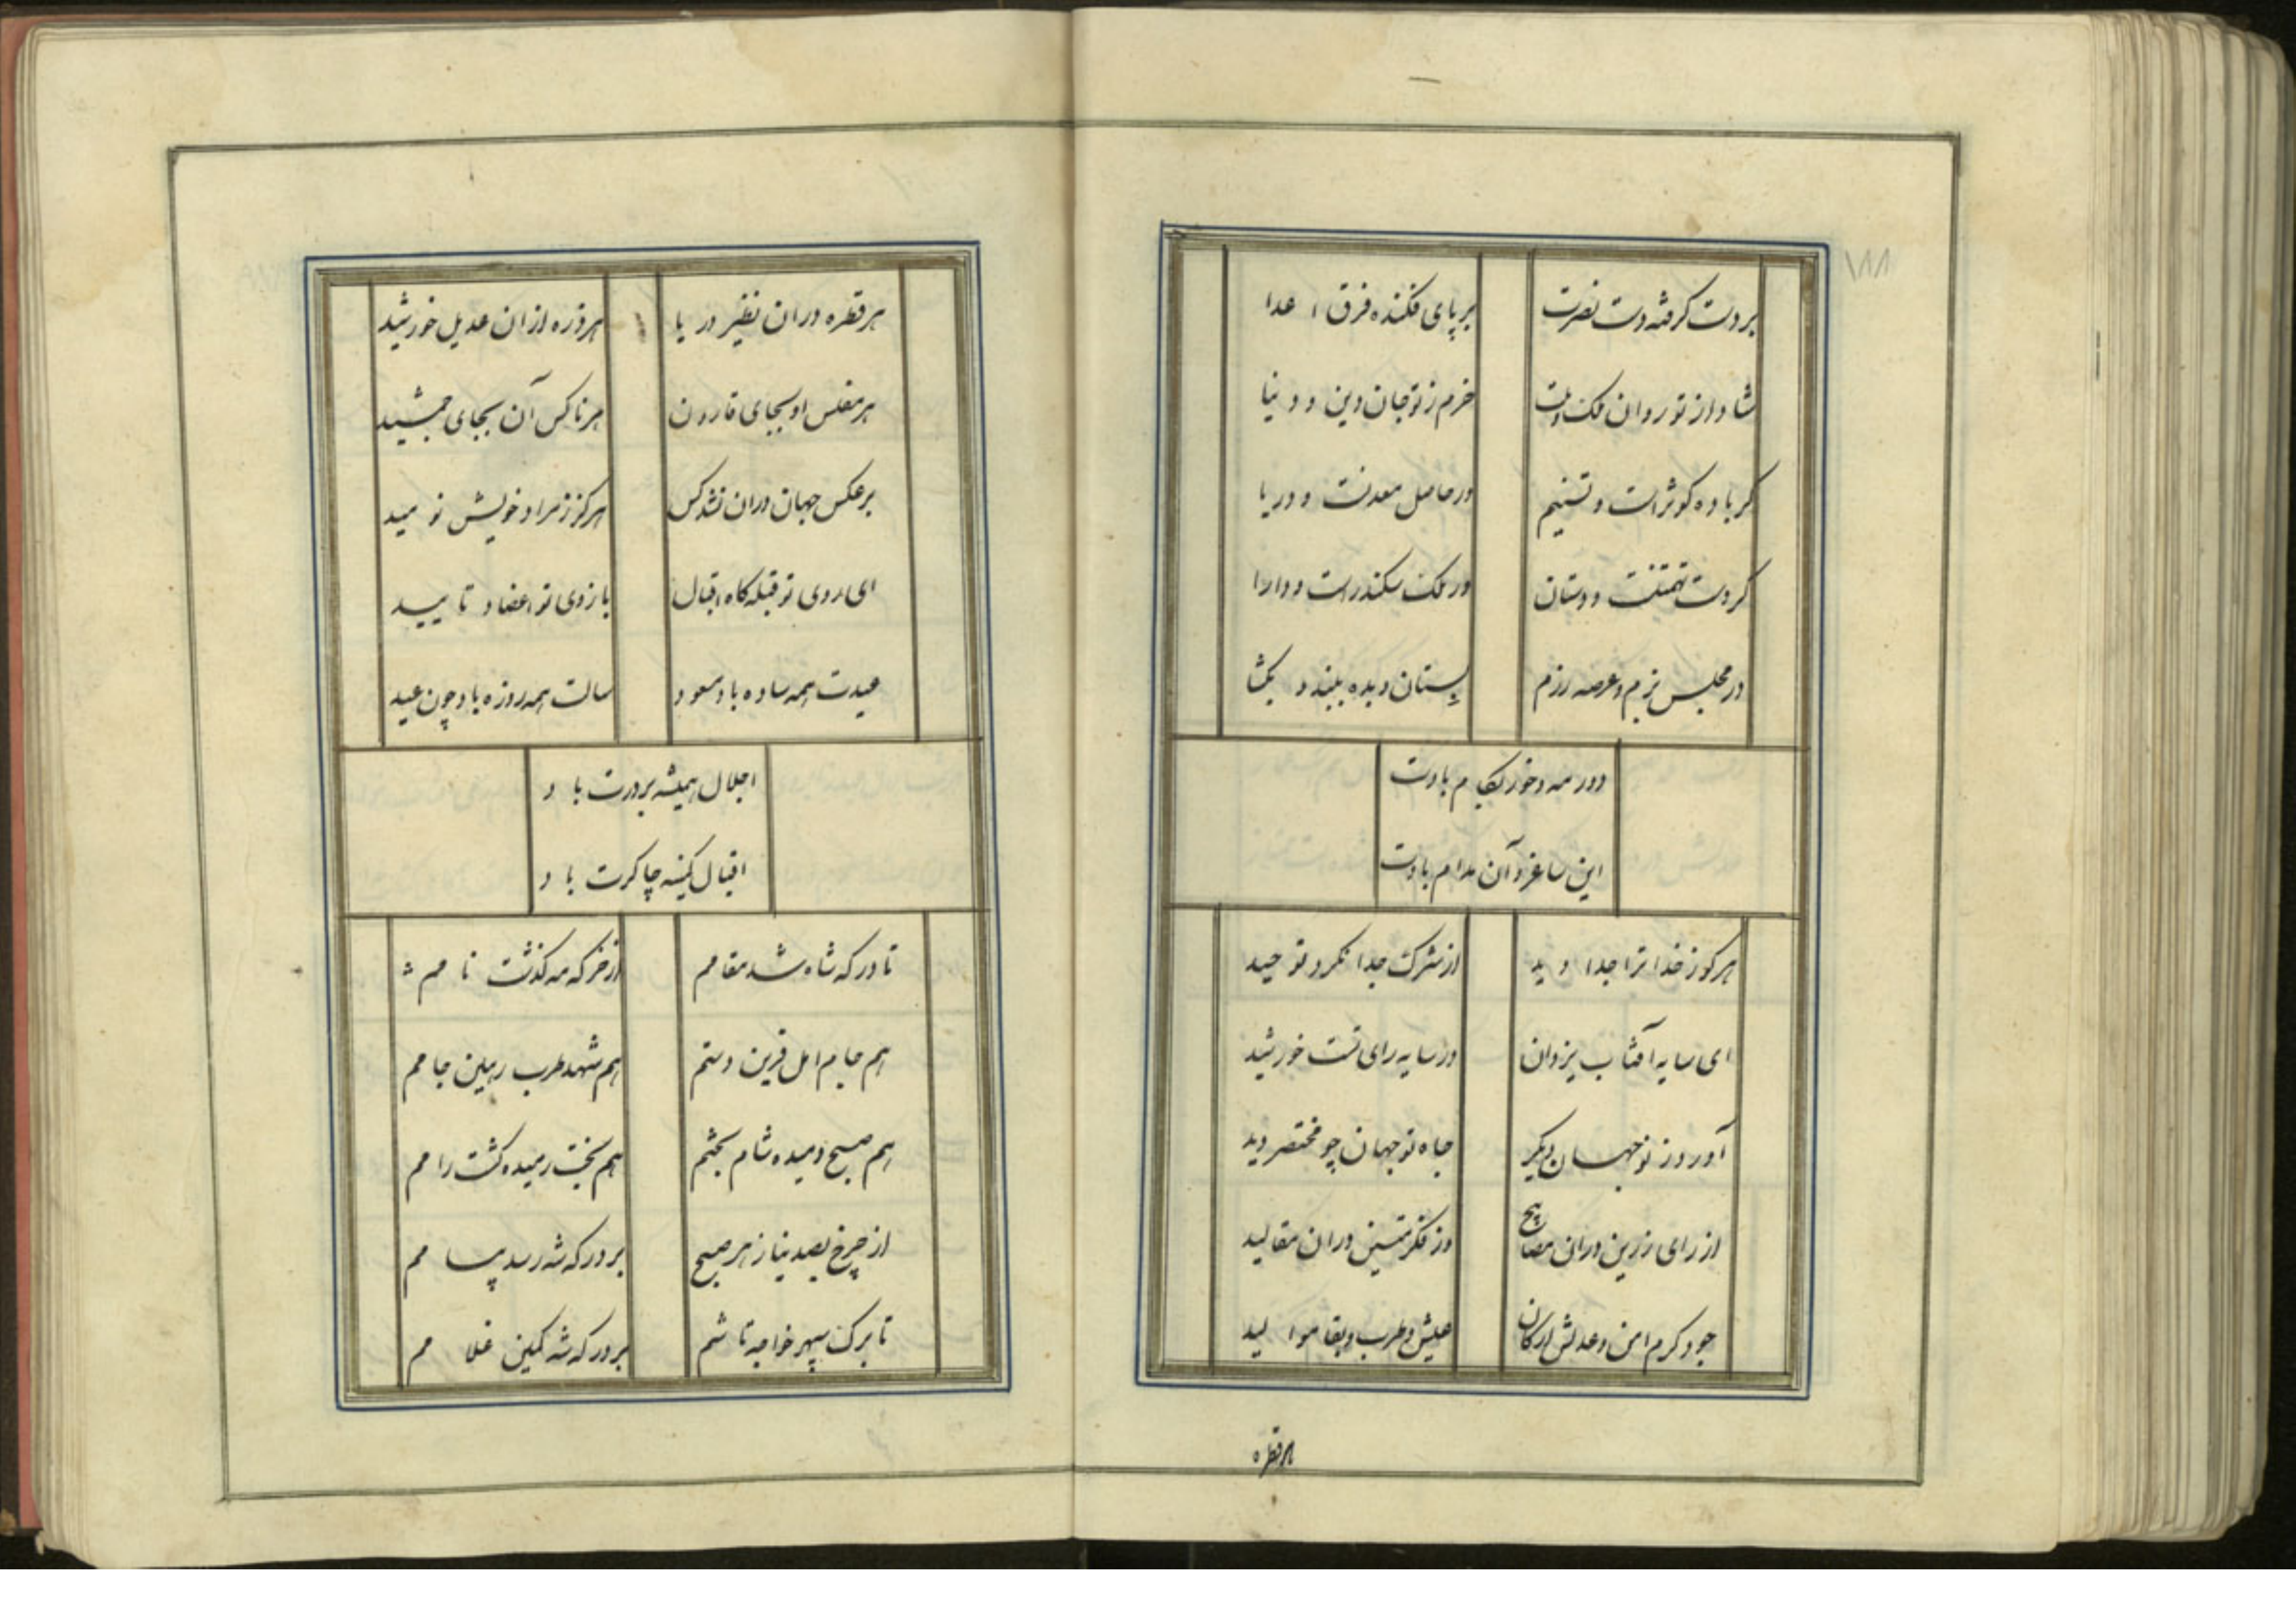 ۱۸۸
بر دست گرفته دست نصرت بر پای فکنده فرق اعدا
شاد از تو روان ملک و ملت خرم ز تو جان دین و دنیا
کر باده کوثر است و تسنیم ور حاصل معدنست و دریا
کر دست تهمتنست و دستان ور ملک سکندر است و دارا
در مجلس بزم و عرصه رزم بستان و بده ببند و بکشا
دور مه و خور بکام بادت
این ساغر و آن مدام بادت
هر کو ز خدا ترا جدا دید از شرک جدا نکرد توحید
ای سایه آفتاب یزدان در سایه رای تست خورشید
آورد ز نو جهان دیکر جاه تو جهان چو مختصر دید
از رای رزین در آن مصابیح وز فکر متین در آن مقالید
جود کرم امن و عدلش ارکان عیش و طرب و بقا موالید
هر قطره
هر قطره در آن نظیر دریا هر ذره از آن عدیل خورشید
هر مفلس او بجای قارون هر ناکس آن بجای جمشید
بر عکس جهان در آن نشد کس هرکز ز مراد خویش نومید
ای روی تو قبله کاه اقبال بازوی تو اعضاد تایید
عیدت همه ساده باد مسعود سالت همه روزه باد چون عید
اجلال همیشه بر درت باد
اقبال کمینه چاکرت باد
تا درکه شاه شد مقامم از خرکه مه کذشت نامم
هم جام امل قرین دستم هم شهد طرب رهین جامم
هم صبح دمیده شام بختم هم بخت رمیده کشت رامم
از چرخ بصد نیاز هر صبح بر درکه شه رسد پیامم
تا برک سپهر خواجه تاشم بر درکه شه کمین غلامم